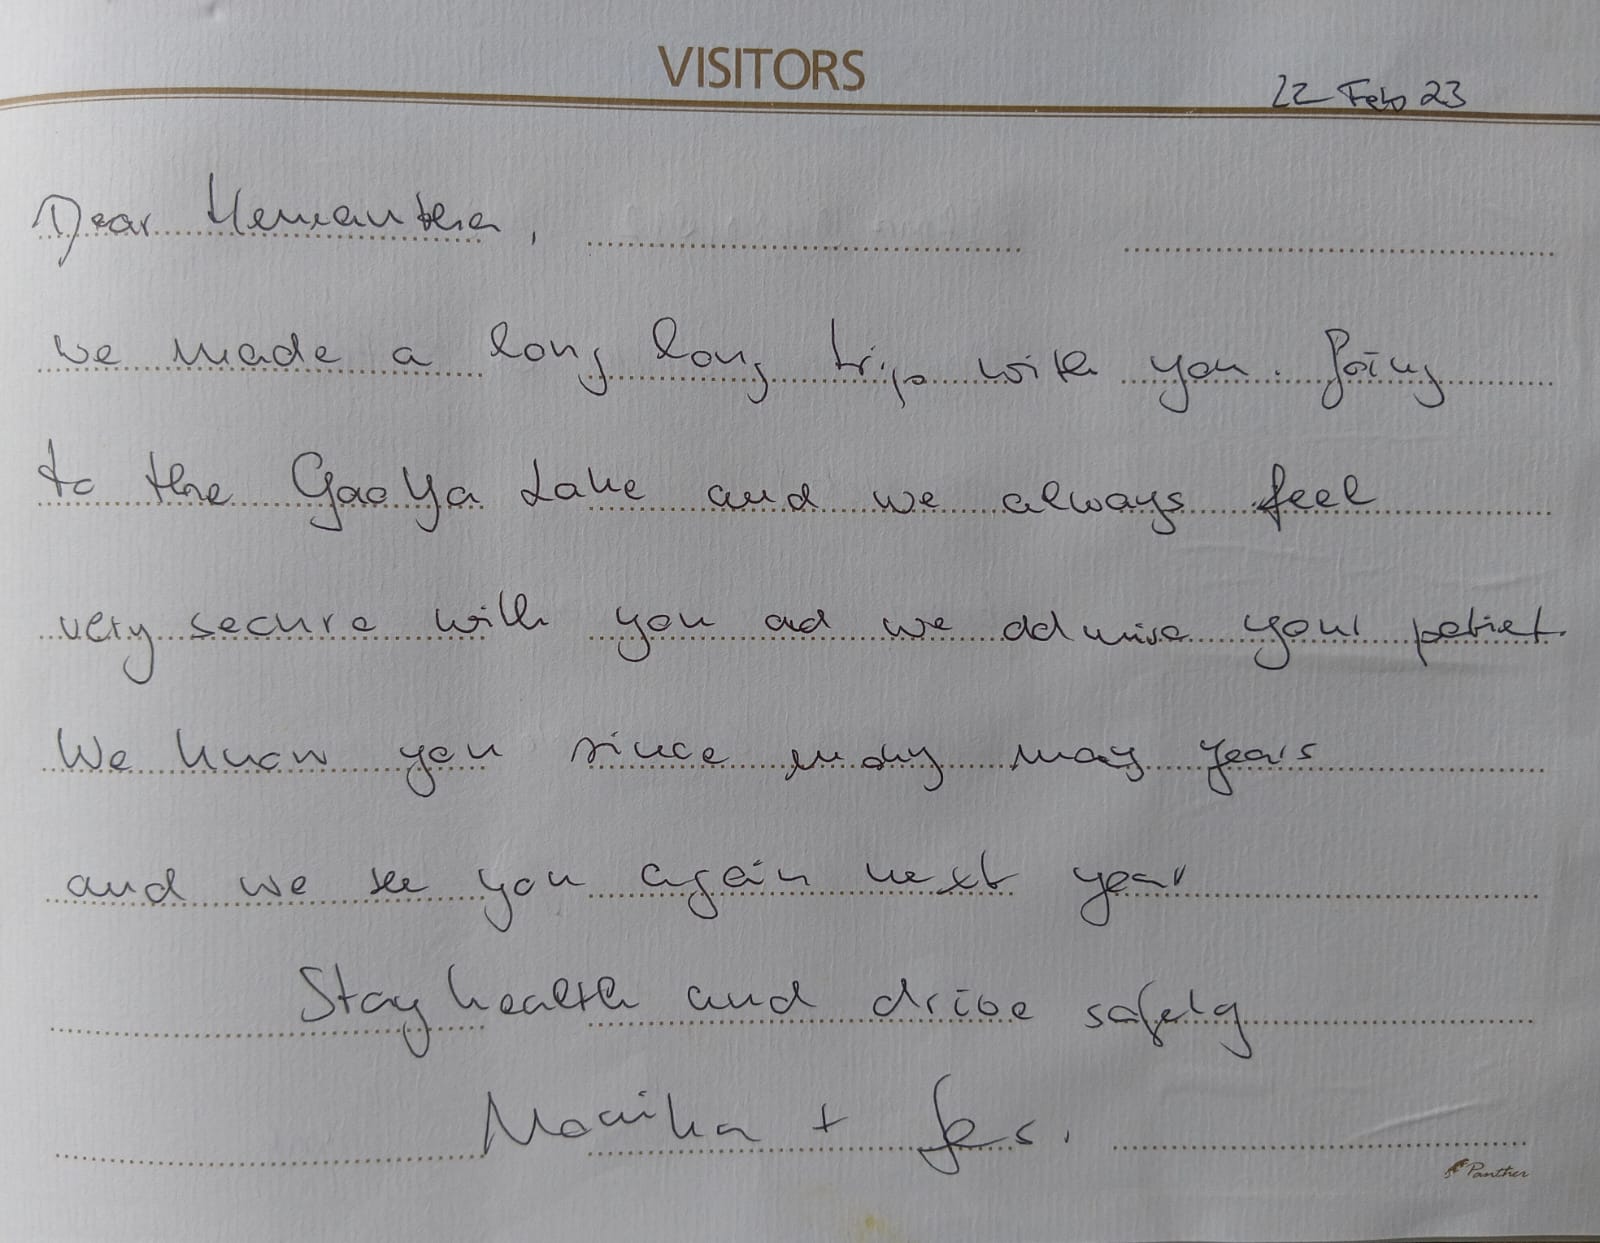 VISITORS
22 Feb 23
Dear Hemantha,
we made a long long trip with you. Going
to the GaoYa Lake and we always feel
very secure with you ad we admire your
We know you since many may years
and we see you again next year
Stay health and drive safely
Monika +
Panther